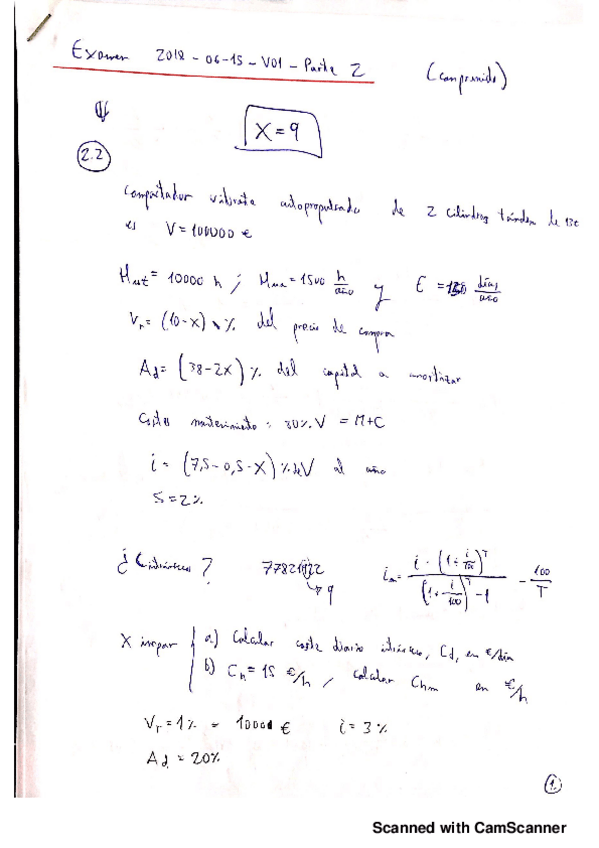 Examen 2018-06-15-V01-Parte 2 (comprimido)
X=9
2.2
Compactador vibrante autopropulsado de 2 cilindros tándem de 13t
es V=100000 €
Hut = 10000 h ; Hua = 1500 h/año y E = días/año
Vr = (10-X) % del precio de compra
Ad = (38-2X) % del capital a amortizar
Costes mantenimiento: 30% V = M+C
i = (7,5-0,5·X) % de V al año
S=2%
¿C intrínseco? im = i·(1+i/100)^T / (1+i/100)^T - 1 - 100/T
9
X impar a) Calcular coste diario intrínseco, Cd, en €/día
b) Ch = 15 €/h, calcular Chm en €/h
Vr = 1% = € i = 3%
Ad = 20%
1.
Scanned with CamScanner